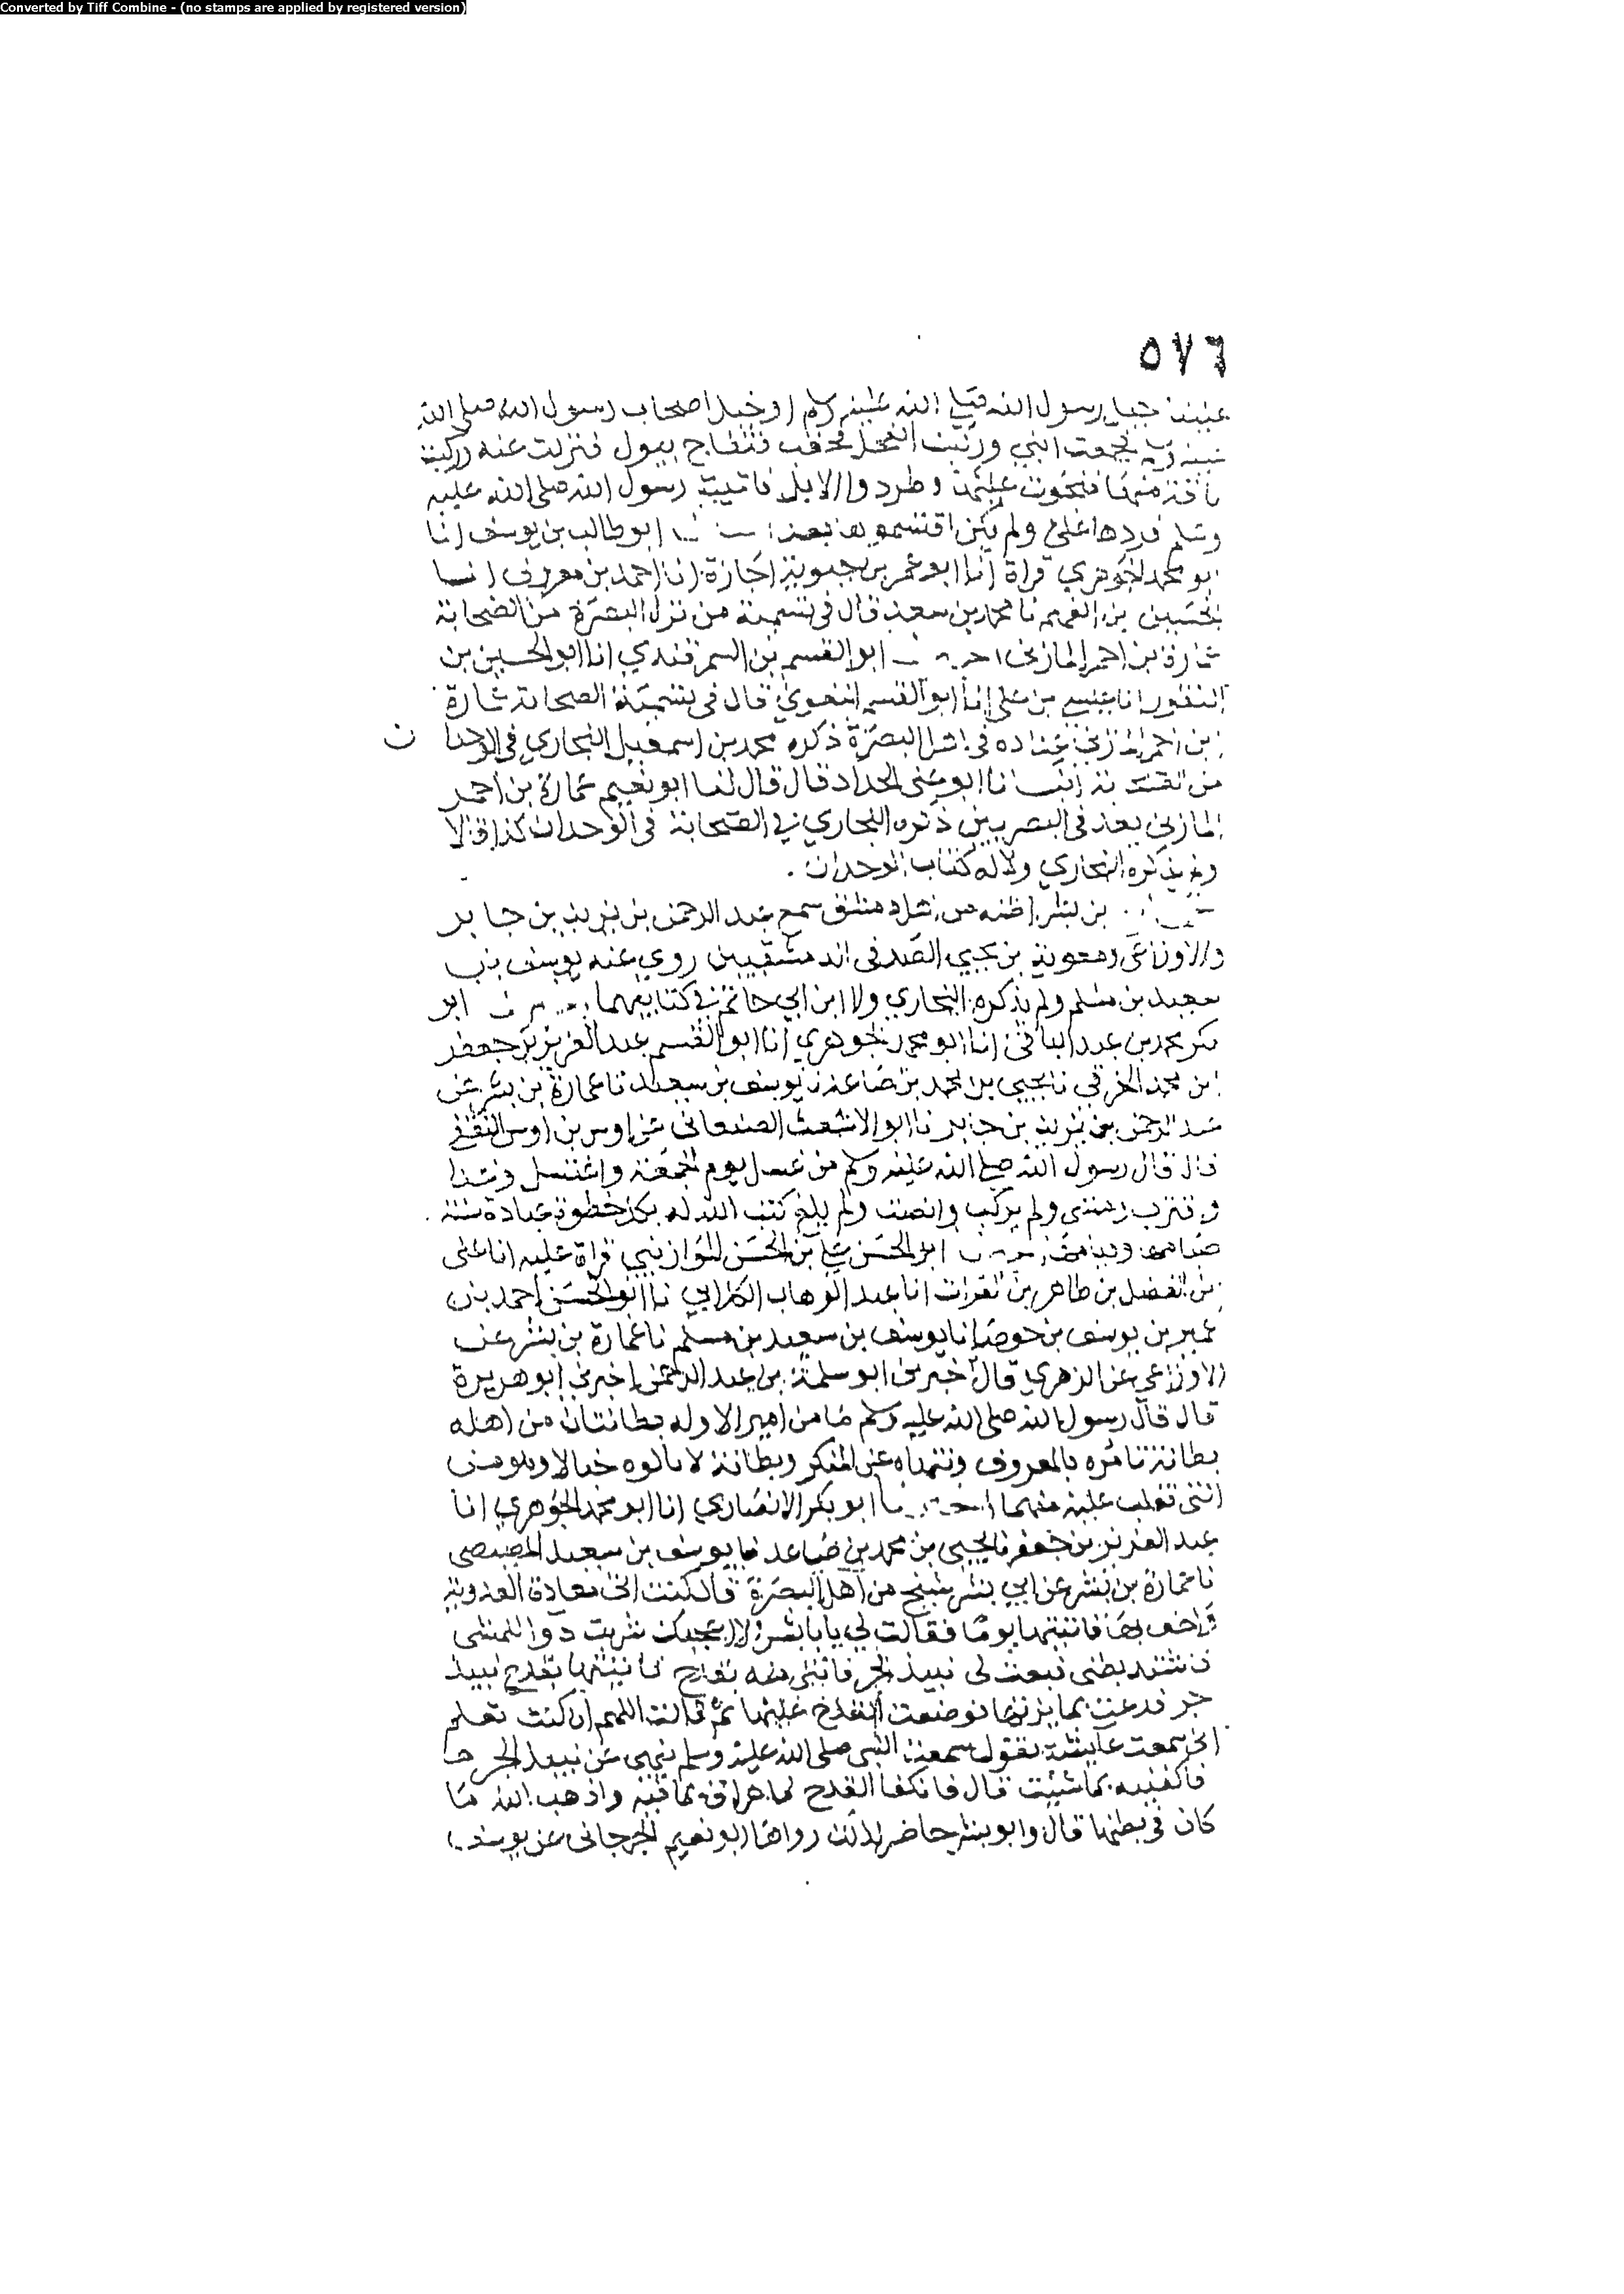 Converted by Tiff Combine - (no stamps are applied by registered version)
٥٧٦
علينا خيل رسول الله صلى الله عليه وسلم او خيل اصحاب رسول الله صلى الله
عليه وسلم فجمعت ابلي وركبت الفحل فحقب فتفاج يبول فنزلت عنه وركبت
ناقة منها فنجوت عليها وطردوا الابل فاتيت رسول الله صلى الله عليه
وسلم فردها علي ولم يكن اقتسموها بعد ابو طالب بن يوسف انا
ابو محمد الجوهري قراة انا ابو عمر بن حيوية اجازة انا احمد بن معروف انا
الحسين بن الفهم نا محمد بن سعد قال في تسمية من نزل البصرة من الصحابة
عمارة بن احمر المازني ابو القسم بن السمرقندي انا ابو الحسين بن
النقور انا عيسى بن علي انا ابو القسم البغوي قال في تسمية الصحابة عمارة
بن احمر المازني عداده في اهل البصرة ذكره محمد بن اسمعيل البخاري في الوحدان
من انا ابو علي الحداد قال قال لنا ابو نعيم عمارة بن احمر
المازني يعد في البصريين ذكره البخاري في الصحابة في الوحدان كذا قالا
ولم يذكره البخاري ولا له كتاب الوحدان .
بن بشر اظنه من اهل دمشق سمع عبد الرحمن بن يزيد بن جابر
والاوزاعي ومعوية بن يحيى الصدفي الدمشقيين روى عنه يوسف بن
سعيد بن مسلم ولم يذكره البخاري ولا ابن ابي حاتم في كتابيهما ابو
بكر محمد بن عبد الباقي انا ابو محمد الجوهري انا ابو القسم عبد العزيز بن جعفر
ابن محمد الخرقي نا يحيى بن محمد بن صاعد نا يوسف بن سعيد نا عمارة بن بشر عن
عبد الرحمن بن يزيد بن جابر نا ابو الاشعث الصنعاني عن اوس بن اوس الثقفي
قال قال رسول الله صلى الله عليه وسلم من غسل يوم الجمعة واغتسل وغدا
واقترب ومشى ولم يركب وانصت ولم يلغ كتب الله له بكل خطوة عبادة سنة
صيامها وقيامها ابو الحسن علي بن الحسن الموازيني قراة عليه انا علي
بن الفضل بن طاهر بن الفرات انا عبد الوهاب الكلابي نا ابو الحسن احمد بن
عمير بن يوسف بن حوصا نا يوسف بن سعيد بن مسلم نا عمارة بن بشر عن
الاوزاعي عن الزهري قال اخبرني ابو سلمة بن عبد الرحمن اخبرني ابو هريرة
قال قال رسول الله صلى الله عليه وسلم ما من امير الا وله بطانتان من اهله
بطانة تامره بالمعروف وتنهاه عن المنكر وبطانة لا تالوه خبالا وهو من
التي تغلب عليه منهما ابو بكر الانصاري انا ابو محمد الجوهري انا
عبد العزيز بن جعفر نا يحيى بن محمد بن صاعد نا يوسف بن سعيد المصيصي
نا عمارة بن بشر عن ابي بشر شيخ من اهل البصرة قال كنت اتي معاذة العدوية
فاتيتها يوما فقالت لي يا ابا بشر الا اعجبك شربت دوا للمشي
فاشتد بطني فنعت لي نبيذ الجر فاتني منه بقدح فاتيتها بقدح نبيذ
جر فدعت بمايدتها فوضعت القدح عليها ثم قالت اللهم ان كنت تعلم
اني سمعت عايشة تقول سمعت النبي صلى الله عليه وسلم ينهى عن نبيذ الجر
فاكفنيه بما شيت قال فانكفا القدح فاهراق ما فيه واذهب الله ما
كان في بطنها قال وابو بشر حاضر لذلك رواها ابو نعيم الجرجاني عن يوسف